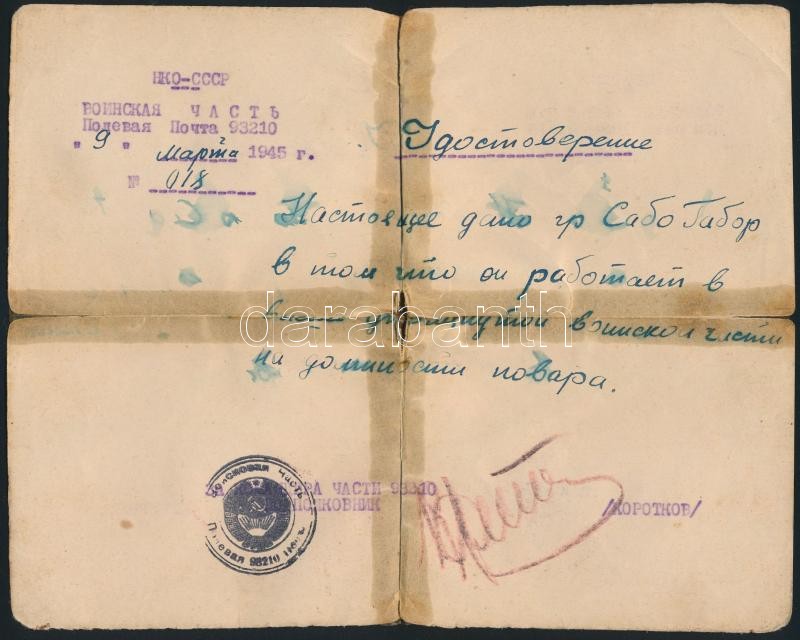 НКО-СССР
ВОИНСКАЯ ЧАСТЬ
Полевая Почта 93210
" 9 " Марта 1945 г.
№ 018
Удостоверение
Настоящее дано гр Сабо Габор
в том что он работает в
выше упомянутой воинской части
на должности повара.
darabanth
ЗА ЧАСТИ 93210
ПОДПОЛКОВНИК
/КОРОТКОВ/
Войсковая часть
Полевая 93210 почта